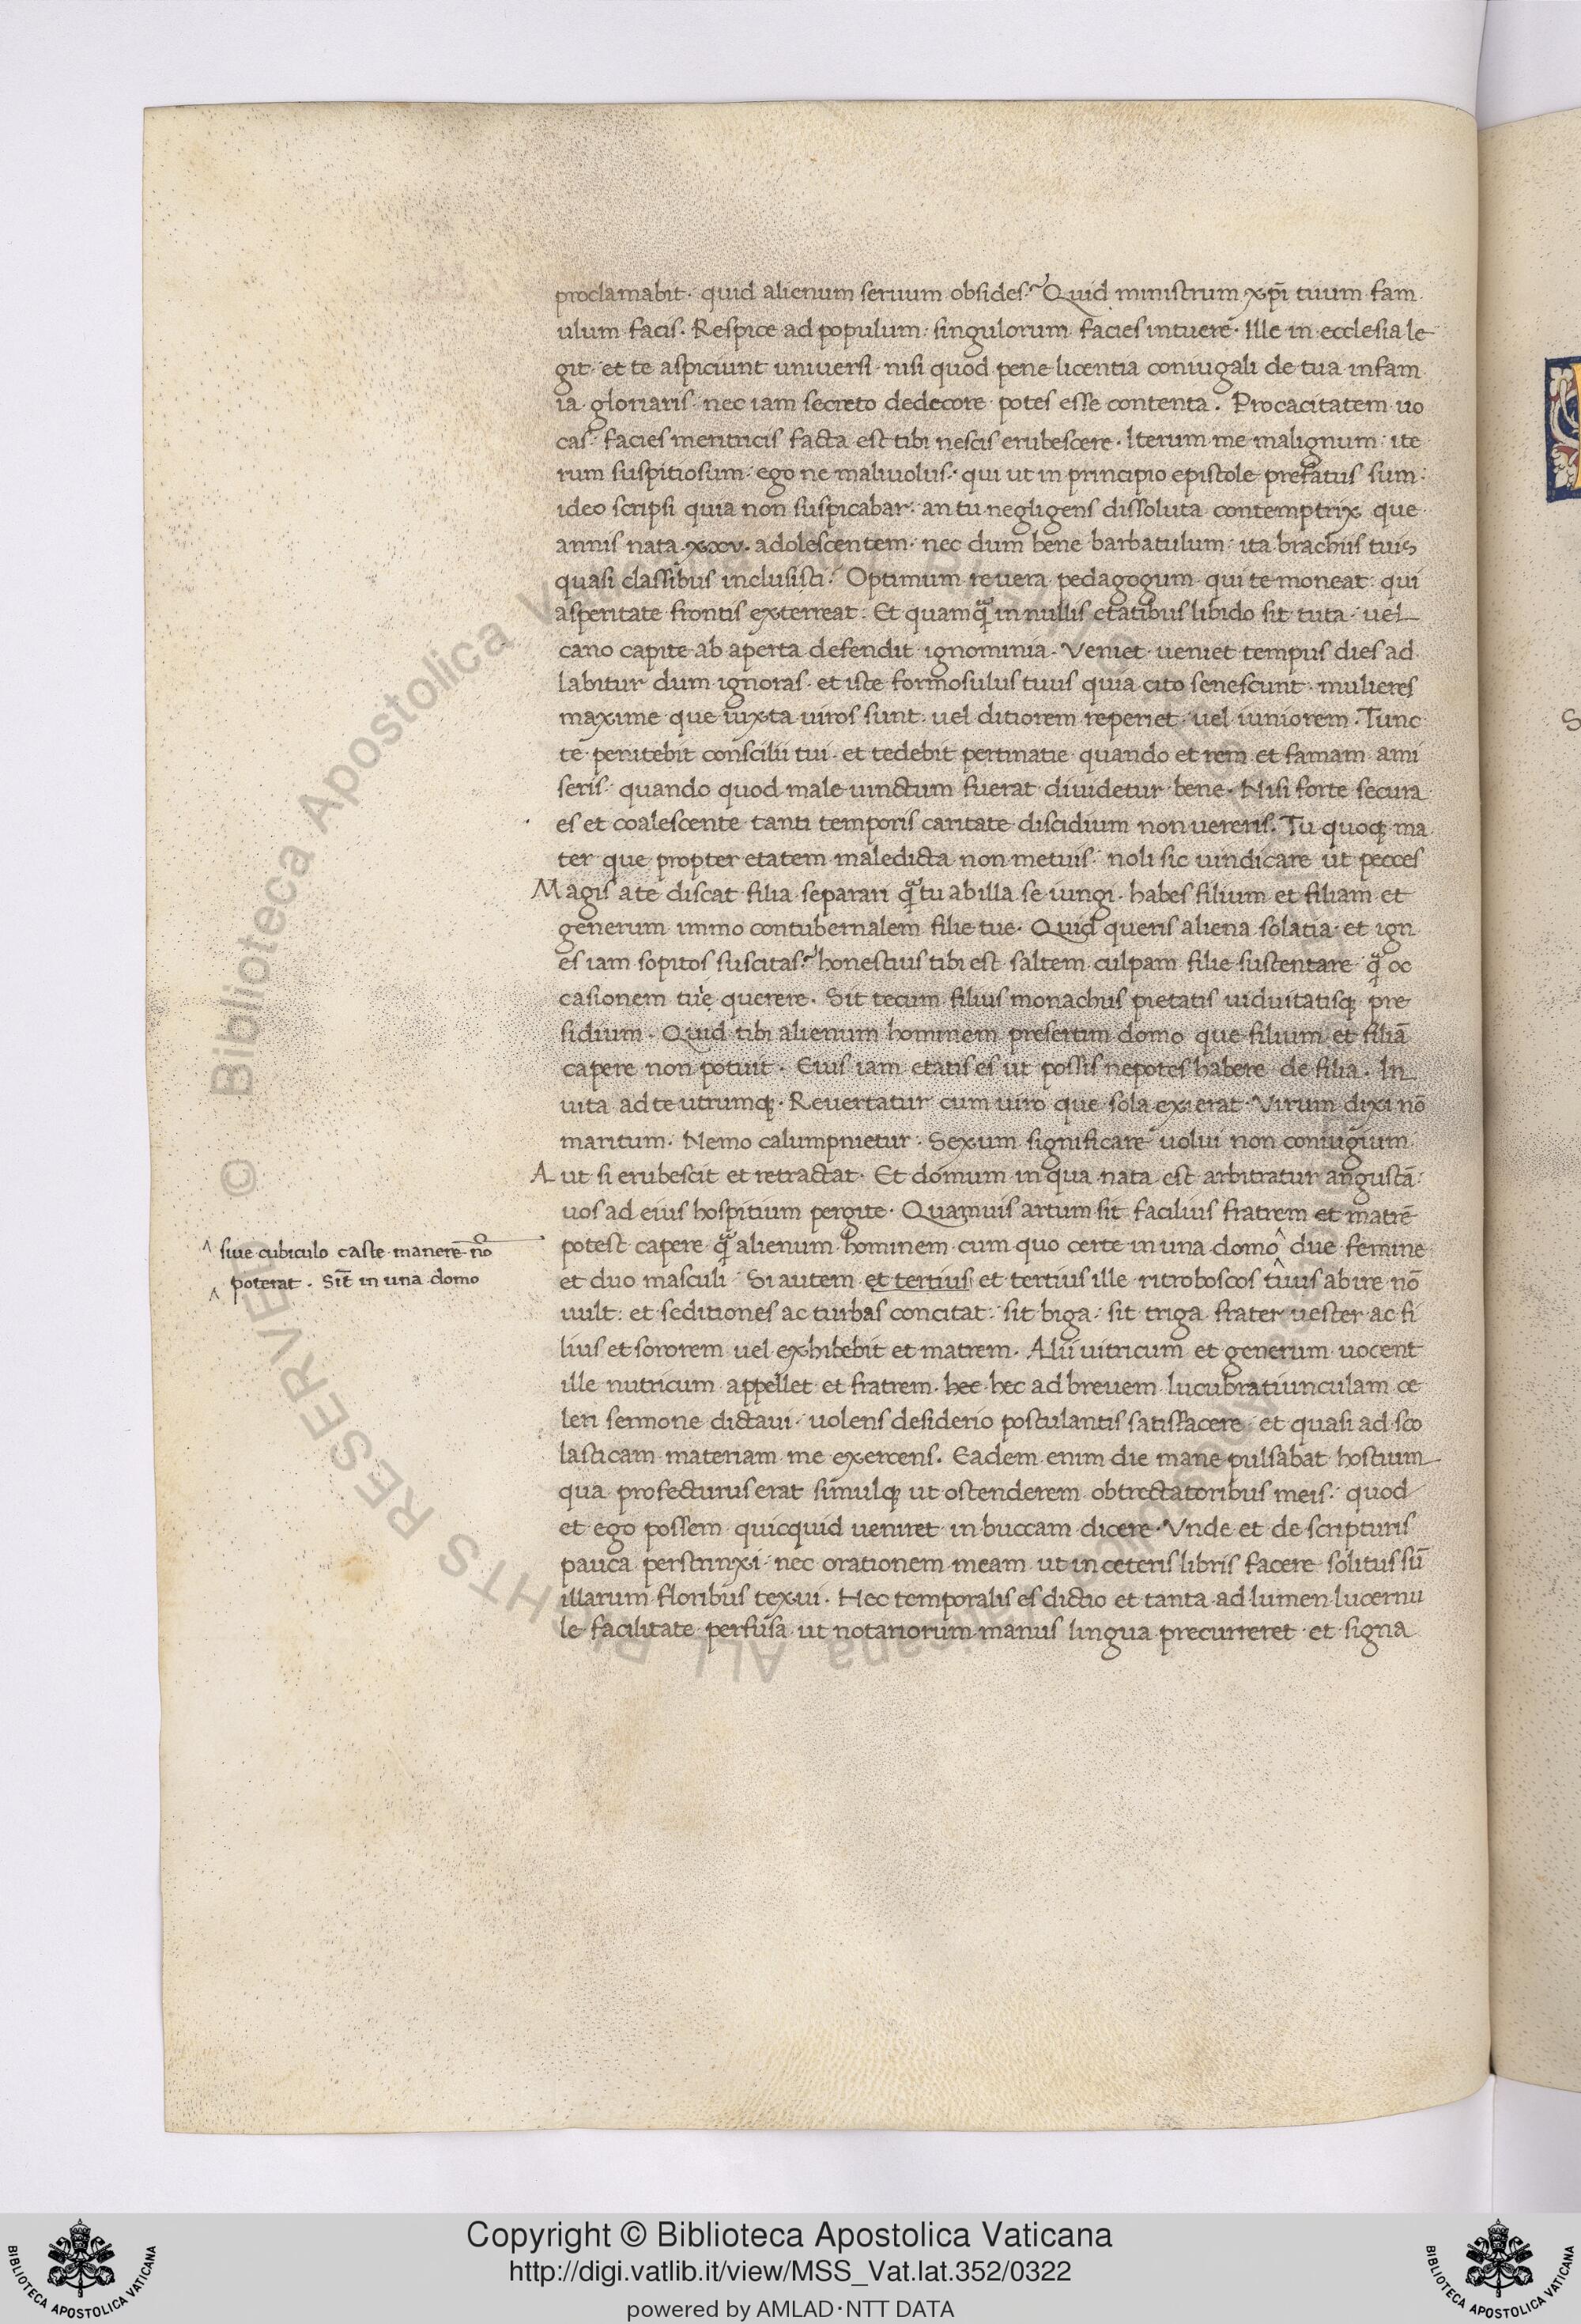 proclamabit· quid alienum seruum obsides? Quid ministrum xp̄i tuum fam
ulum facis. Respice ad populum: singulorum facies intuere· Ille in ecclesia le
git· et te aspiciunt uniuersi· nisi quod pene licentia coniugali de tua infam
ia gloriaris· nec iam secreto dedecore potes esse contenta. Procacitatem uo
cas· facies meritricis facta est tibi nescis erubescere. Iterum me malignum: ite
rum suspitiosum· ego ne maliuolus· qui ut in principio epistole prefatus sum:
ideo scripsi quia non suspicabar: an tu negligens dissoluta contemptrix que
annis nata xxv. adolescentem· nec dum bene barbatulum: ita brachiis tuis
quasi classibus inclusisti. Optimum re uera pedagogum qui te moneat: qui
asperitate frontis exterreat: Et quamq̃ in nullis etatibus libido sit tuta· uel
cano capite ab aperta defendit ignominia. Veniet ueniet tempus dies ad
labitur dum ignoras· et iste formosulus tuus quia cito senescunt mulieres
maxime que iuxta uiros sunt· uel ditiorem reperiet· uel iuniorem. Tunc
te penitebit conscilii tui· et tedebit pertinatie quando et rem et famam ami
seris· quando quod male uinctum fuerat diuidetur bene. Nisi forte secura
es et coalescente tanti temporis caritate discidium non uereris. Tu quoq; ma
ter que propter etatem maledicta non metuis· noli sic uindicare ut pecces
Magis a te discat filia separari q̃ tu ab illa se iungi. habes filium et filiam et
generum immo contubernalem filie tue· Quid queris aliena solatia· et ign
es iam sopitos suscitas? honestius tibi est saltem culpam filie sustentare q̃ oc
casionem tuę querere. Sit tecum filius monachus pietatis uiduitatisq; pre
sidium. Quid tibi alienum hominem presertim domo que filium et filiā
capere non potuit. Eius iam etatis es ut possis nepotes habere de filia. In
uita ad te utrumq;. Reuertatur cum uiro que sola exierat. Virum dixi nō
maritum. Nemo calumpnietur. Sexum significare uolui non coniugium
Aut si erubescit et retractat. Et domum in qua nata est arbitratur angustā:
uos ad eius hospitium pergite. Quamuis artum sit facilius fratrem et matrē
potest capere q̃ alienum hominem cum quo certe in una domo^ due femine
et duo masculi Si autem et tertius et tertius ille ritroboscos tuus abire nō
uult: et seditiones ac turbas concitat: sit biga: sit triga frater uester ac fi
lius et sororem uel exhibebit et matrem. Alii uitricum et generum uocent
ille nutricum appellet et fratrem. hec hec ad breuem lucubratiunculam ce
leri sermone dictaui· uolens desiderio postulantis satisfacere et quasi ad sco
lasticam materiam me exercens. Eadem enim die mane pulsabat hostium
qua profecturus erat simulq; ut ostenderem obtrectatoribus meis: quod
et ego possem quicquid ueniret in buccam dicere. Vnde et de scripturis
pauca perstrinxi· nec orationem meam ut in ceteris libris facere solitus sū
illarum floribus texui. Hec temporalis es dictio et tanta ad lumen lucernu
le facilitate perfusa ut notariorum manus lingua precurreret et signa
^ siue cubiculo caste manere nō
^ poterat. Sit̄ in una domo
© Biblioteca Apostolica Vaticana ALL RIGHTS RESERVED
Copyright © Biblioteca Apostolica Vaticana
http://digi.vatlib.it/view/MSS_Vat.lat.352/0322
powered by AMLAD·NTT DATA
BIBLIOTECA APOSTOLICA VATICANA
BIBLIOTECA APOSTOLICA VATICANA